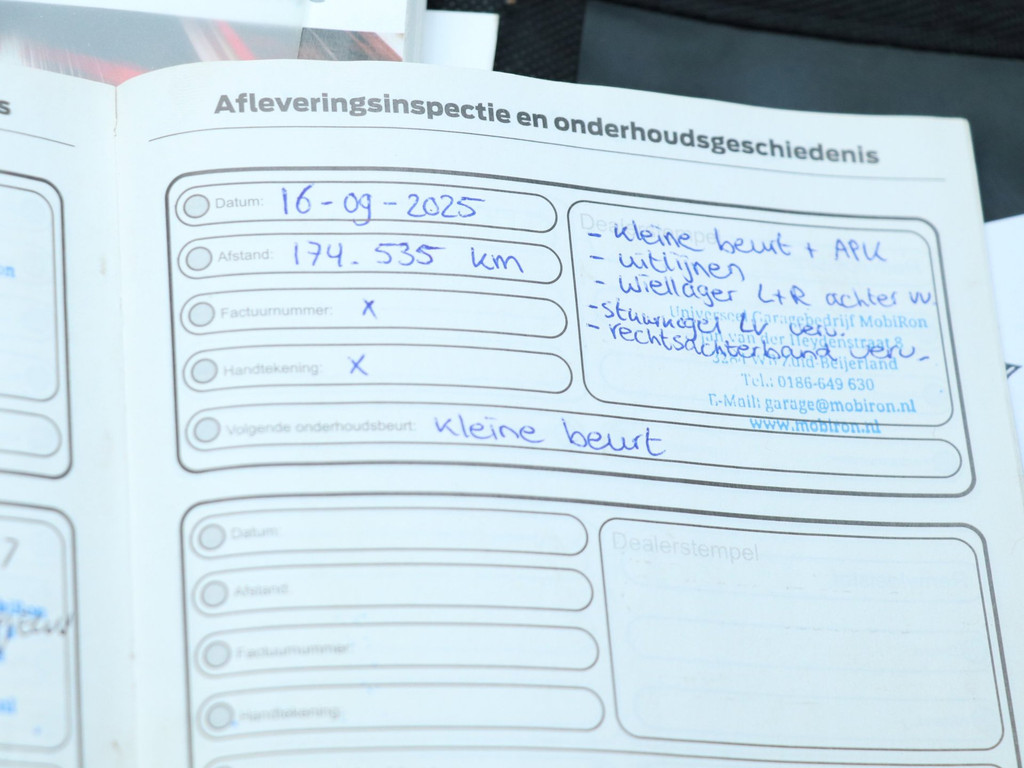 s
Afleveringsinspectie en onderhoudsgeschiedenis
Datum: 16-09-2025
Afstand: 174.535 km
Factuurnummer: x
Handtekening: x
Volgende onderhoudsbeurt: kleine beurt
- kleine beurt + APK
- uitlijnen
- wiellager L+R achter vv.
- stuurkogel LV verv.
- rechtsachterband verv.
Universeel Garagebedrijf MobiRon
van der Heydenstraat 8
Zuid-Beijerland
Tel.: 0186-649 630
E-Mail: garage@mobiron.nl
www.mobiron.nl
Datum:
Afstand:
Factuurnummer:
Handtekening:
Dealerstempel
7